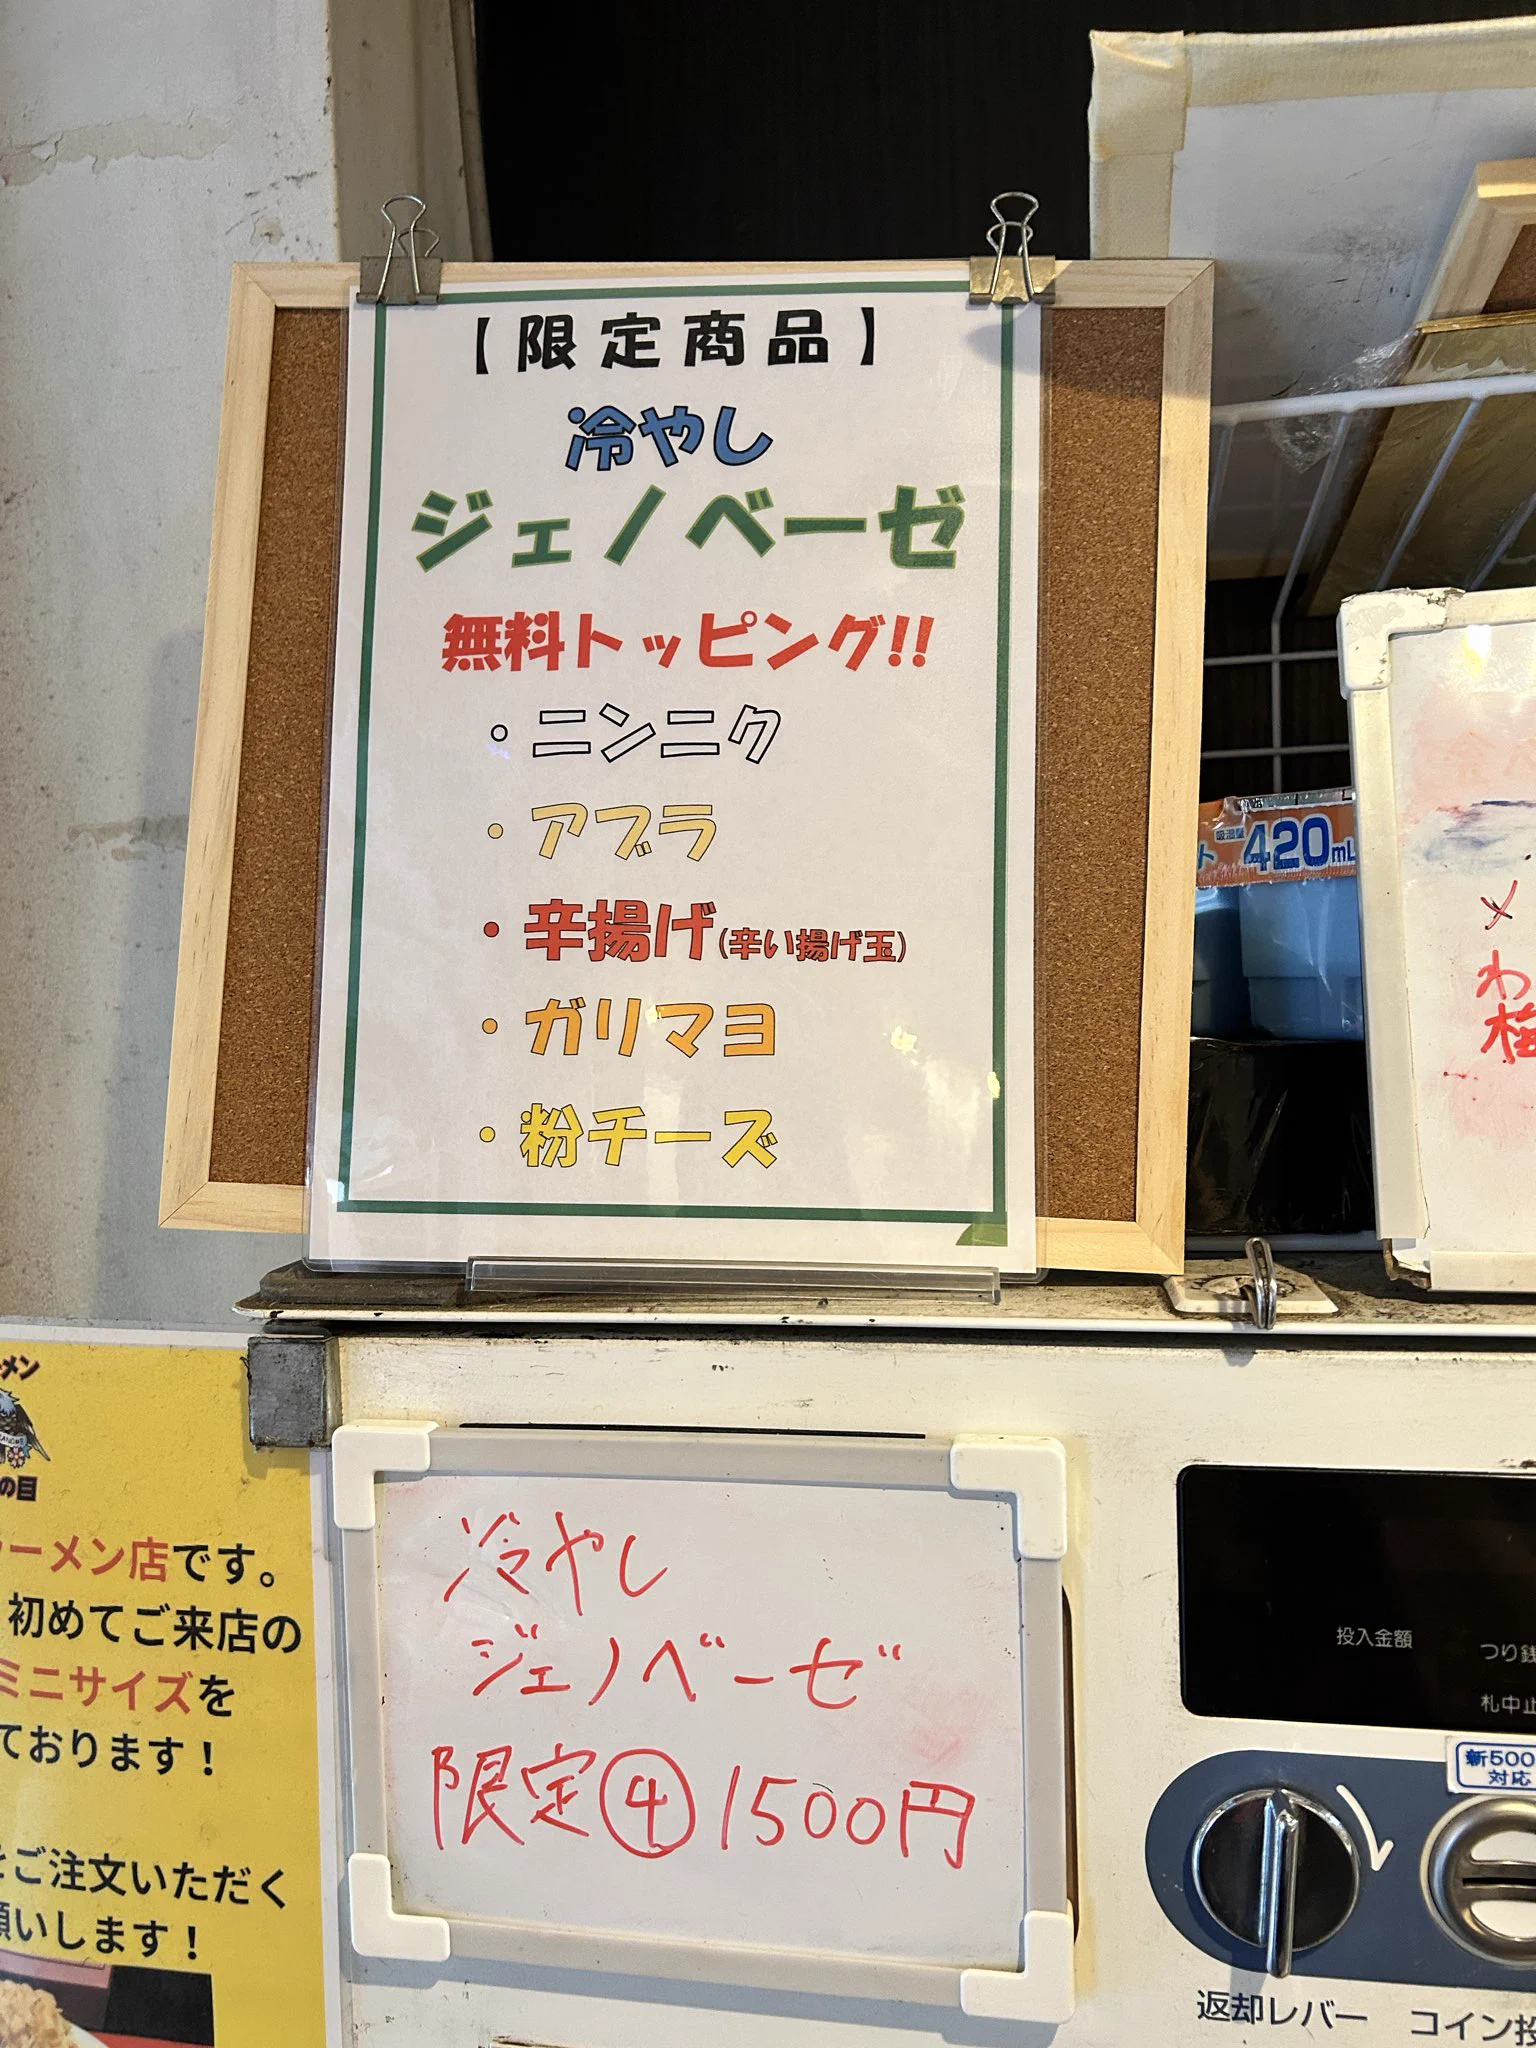 【限定商品】
冷やし
ジェノベーゼ
無料トッピング!!
・ニンニク
・アブラ
・辛揚げ(辛い揚げ玉)
・ガリマヨ
・粉チーズ
吸湿量
ト 420mL
メ
わ
梅
ーメン
の目
ラーメン店です。
初めてご来店の
ミニサイズを
ております！
をご注文いただく
願いします！
冷やし
ジェノベーゼ
限定④1500円
投入金額
つり銭
札中止
新500
対応
返却レバー
コイン投